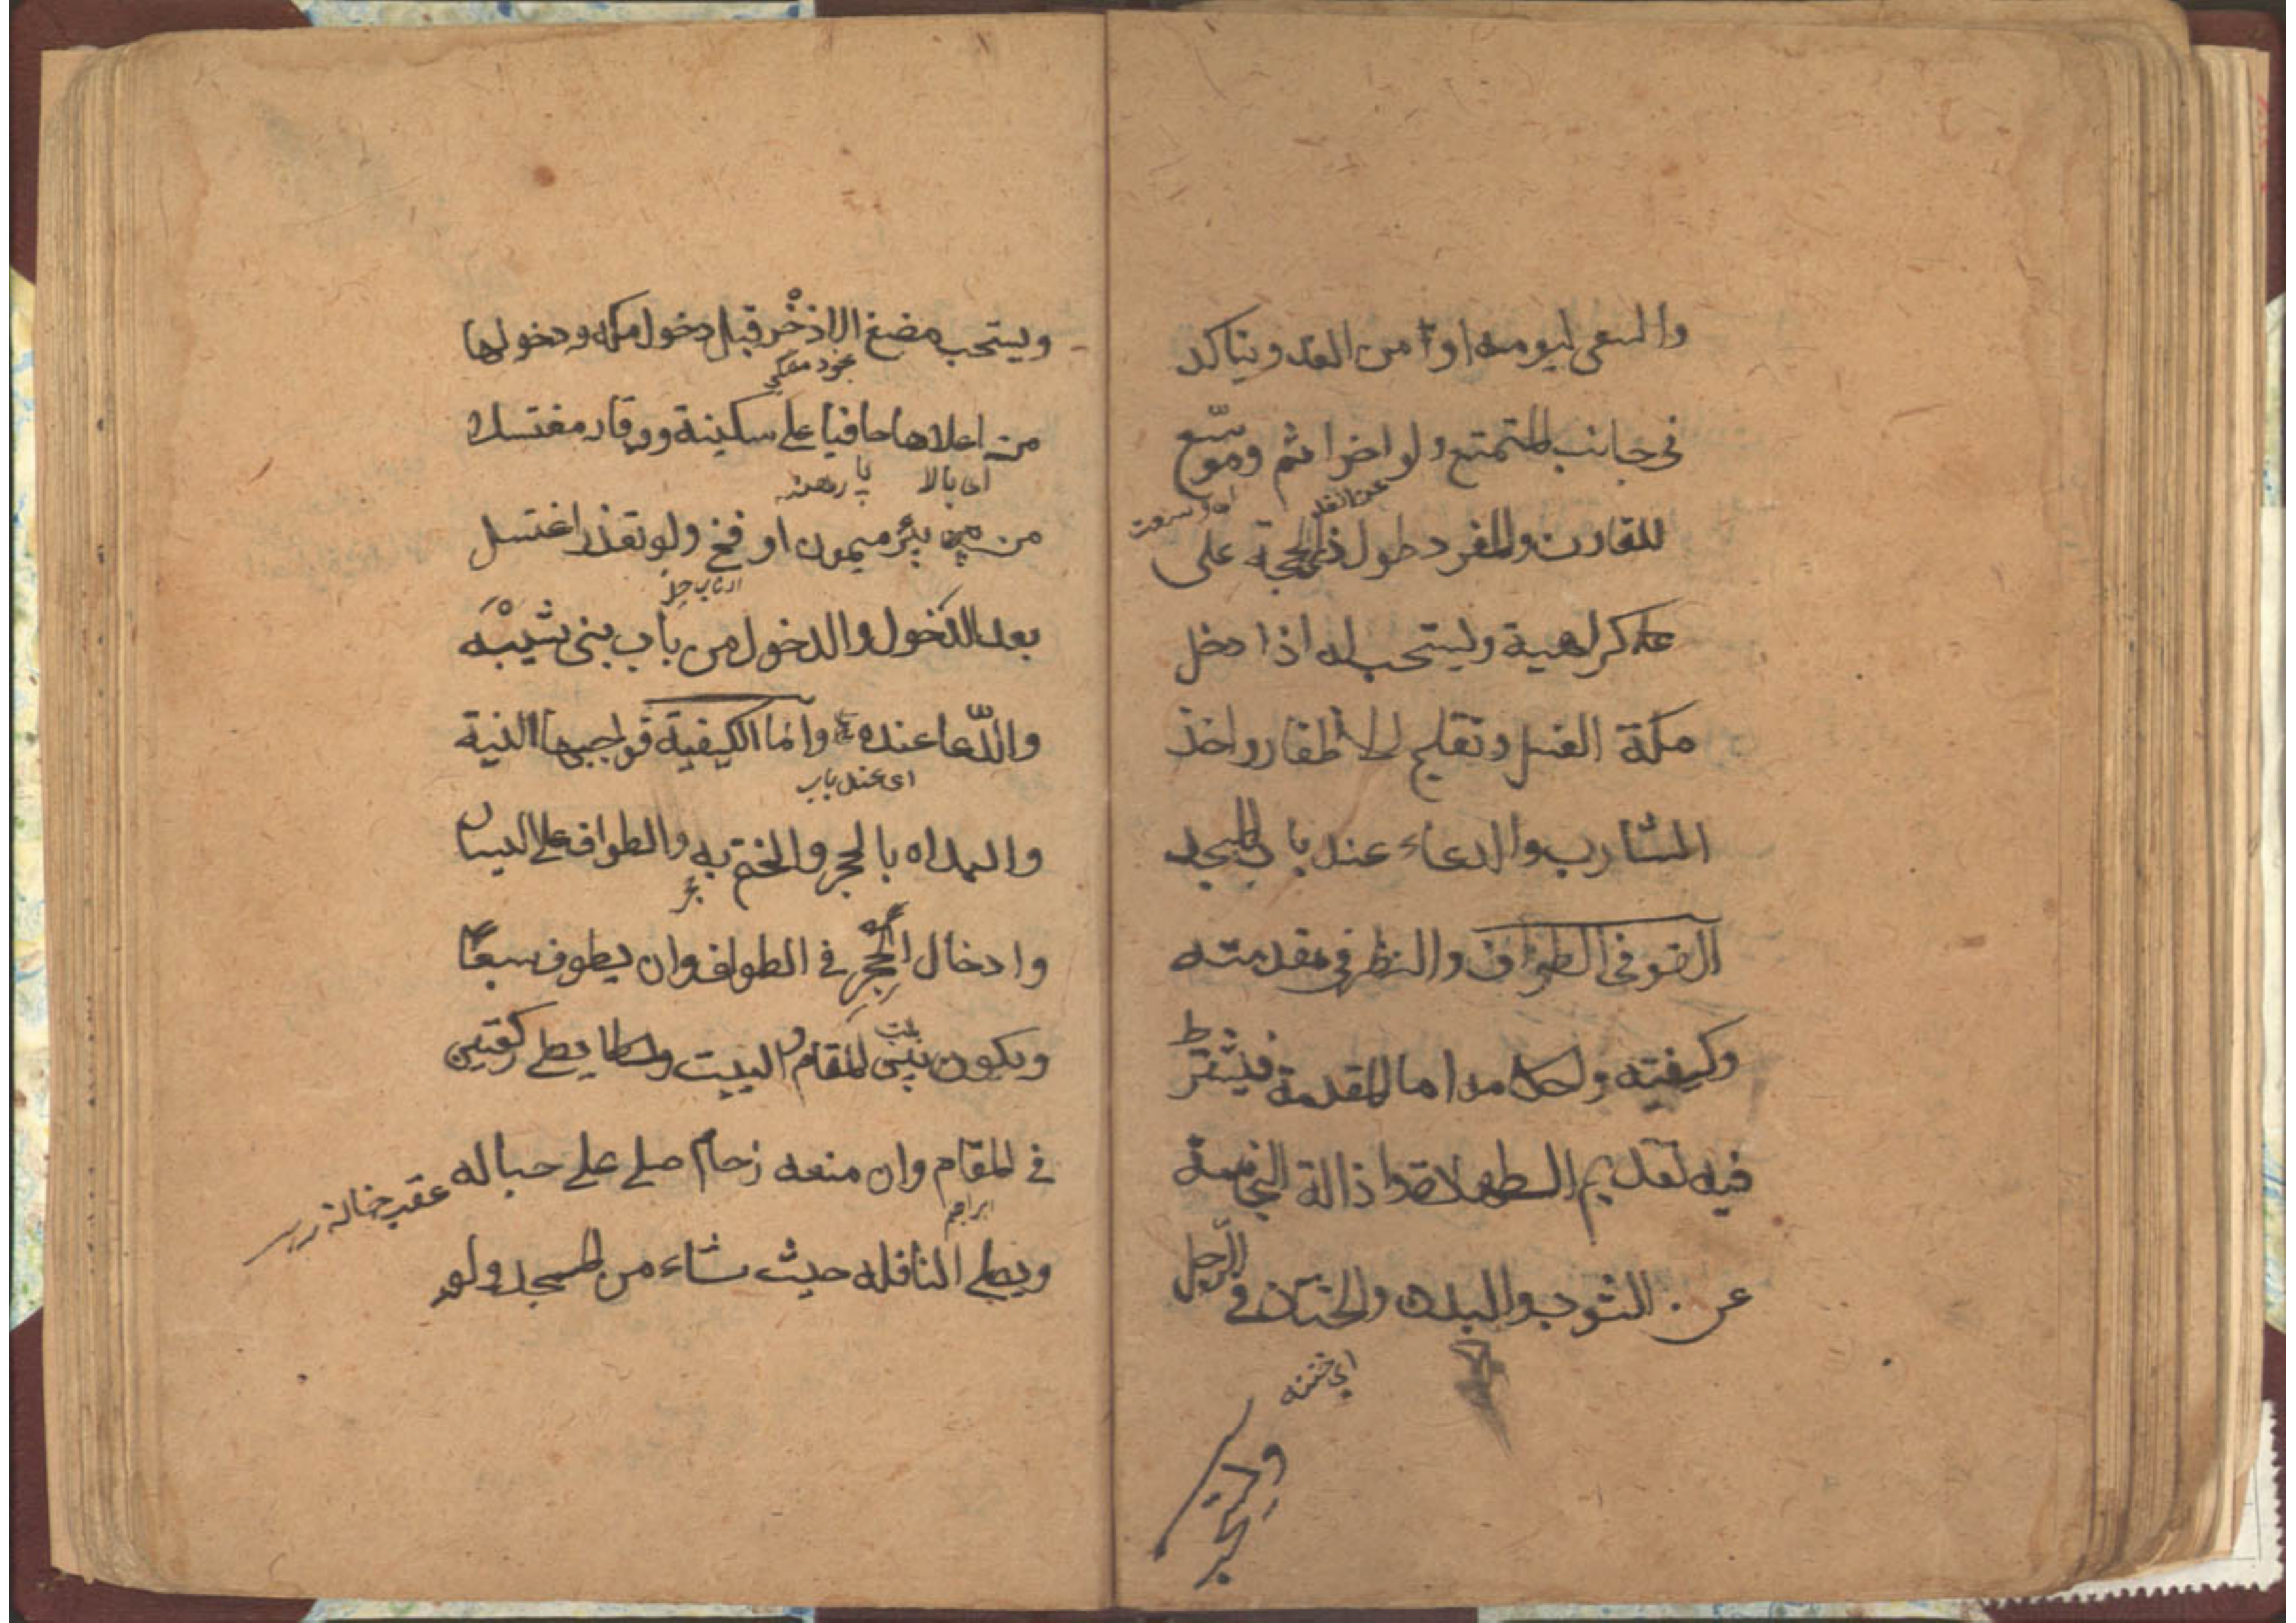 والسعى ليومه او من الغد ويتاكد
فى جانب المتمتع ولو اخر اثم وموسّع
عن الغد
للقارن والمفرد طول ذى الحجة على
على كراهية ويستحب له اذا دخل
مكة الغسل وتقليم الاظفار واخذ
الشارب والدعاء عند باب المسجد
القو فى الطواف والنظر فى مقدمته
وكيفيته واحكامه اما المقدمة فيشترط
فيه تقديم الطهارة واذالة النجاسة
عن الثوب والبدن والختان فى الرّجل
اى ختنه
ويستحب
ويستحب مضغ الاذْخر قبل دخول مكه ودخولها
من اعلاها حافيا على سكينة ووقار مغتسلا
اى بالا پا برهنه
من بئر ميمون او فخ ولو تعذر اغتسل
بعد الدخول والدخول من باب بنى شيْبَه
والدّعا عنده وامّا الكيفية فواجبها النية
اى عند باب
والبداه بالحجر والختم به والطواف على اليسار
وادخال الحجر فى الطواف وان يطوف سبعًا
ويكون بين المقام والبيت ويصلى ركعتين
فى المقام وان منعه زحام صلى على حياله
ابراهيم
ويصلى النافله حيث شاء من المسجد ولو